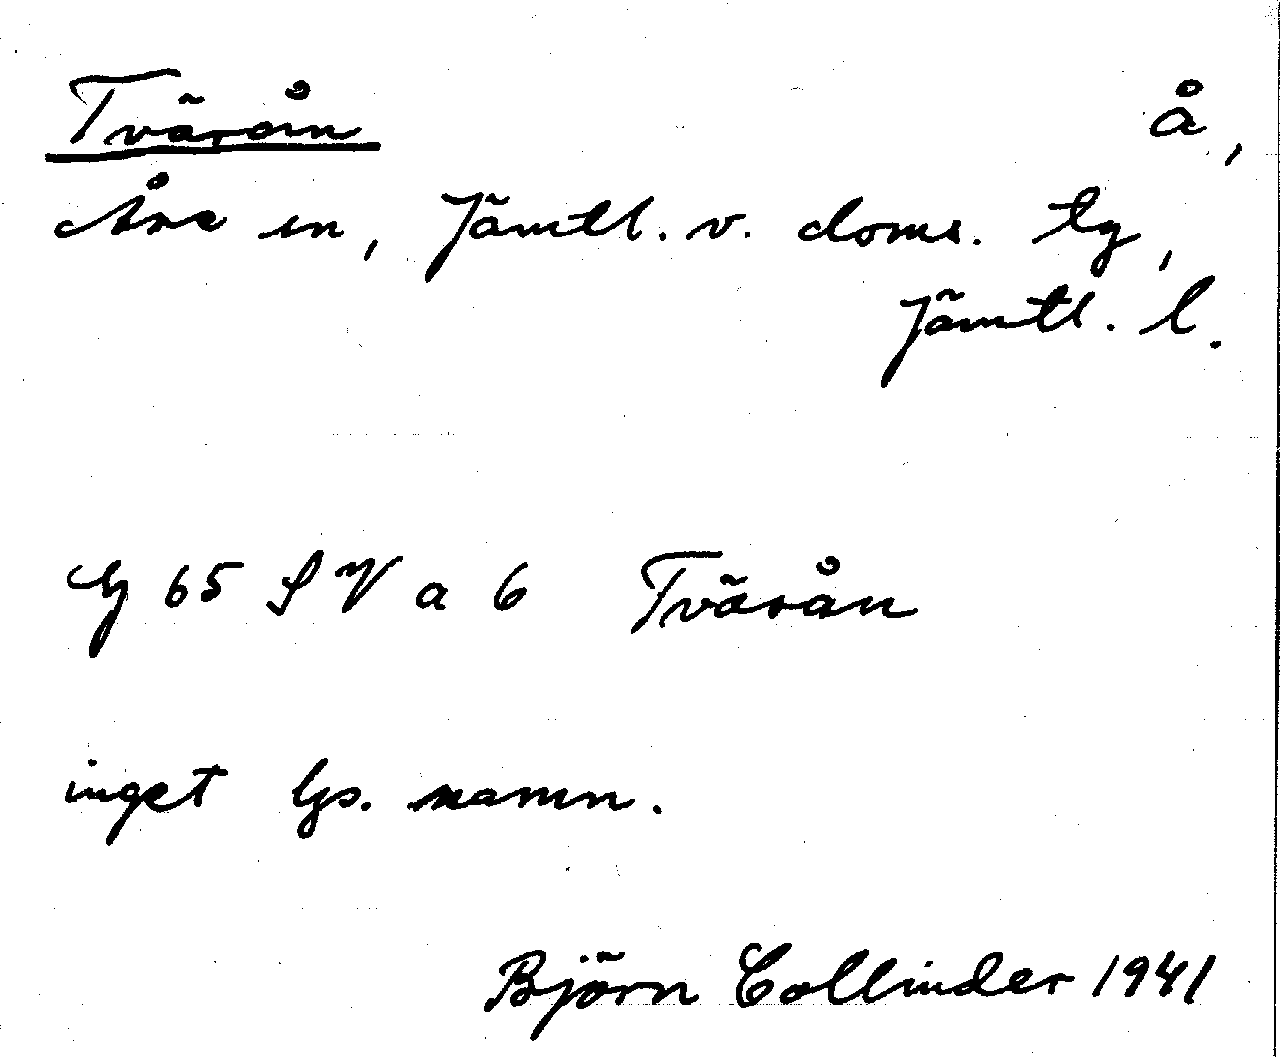 Tväråm å,
Åre sn, Jämtl. v. doms. tg,
Jämtl. l.
G 65 S V a 6 Tvärån
inget lps. namn.
Björn Collinder 1941